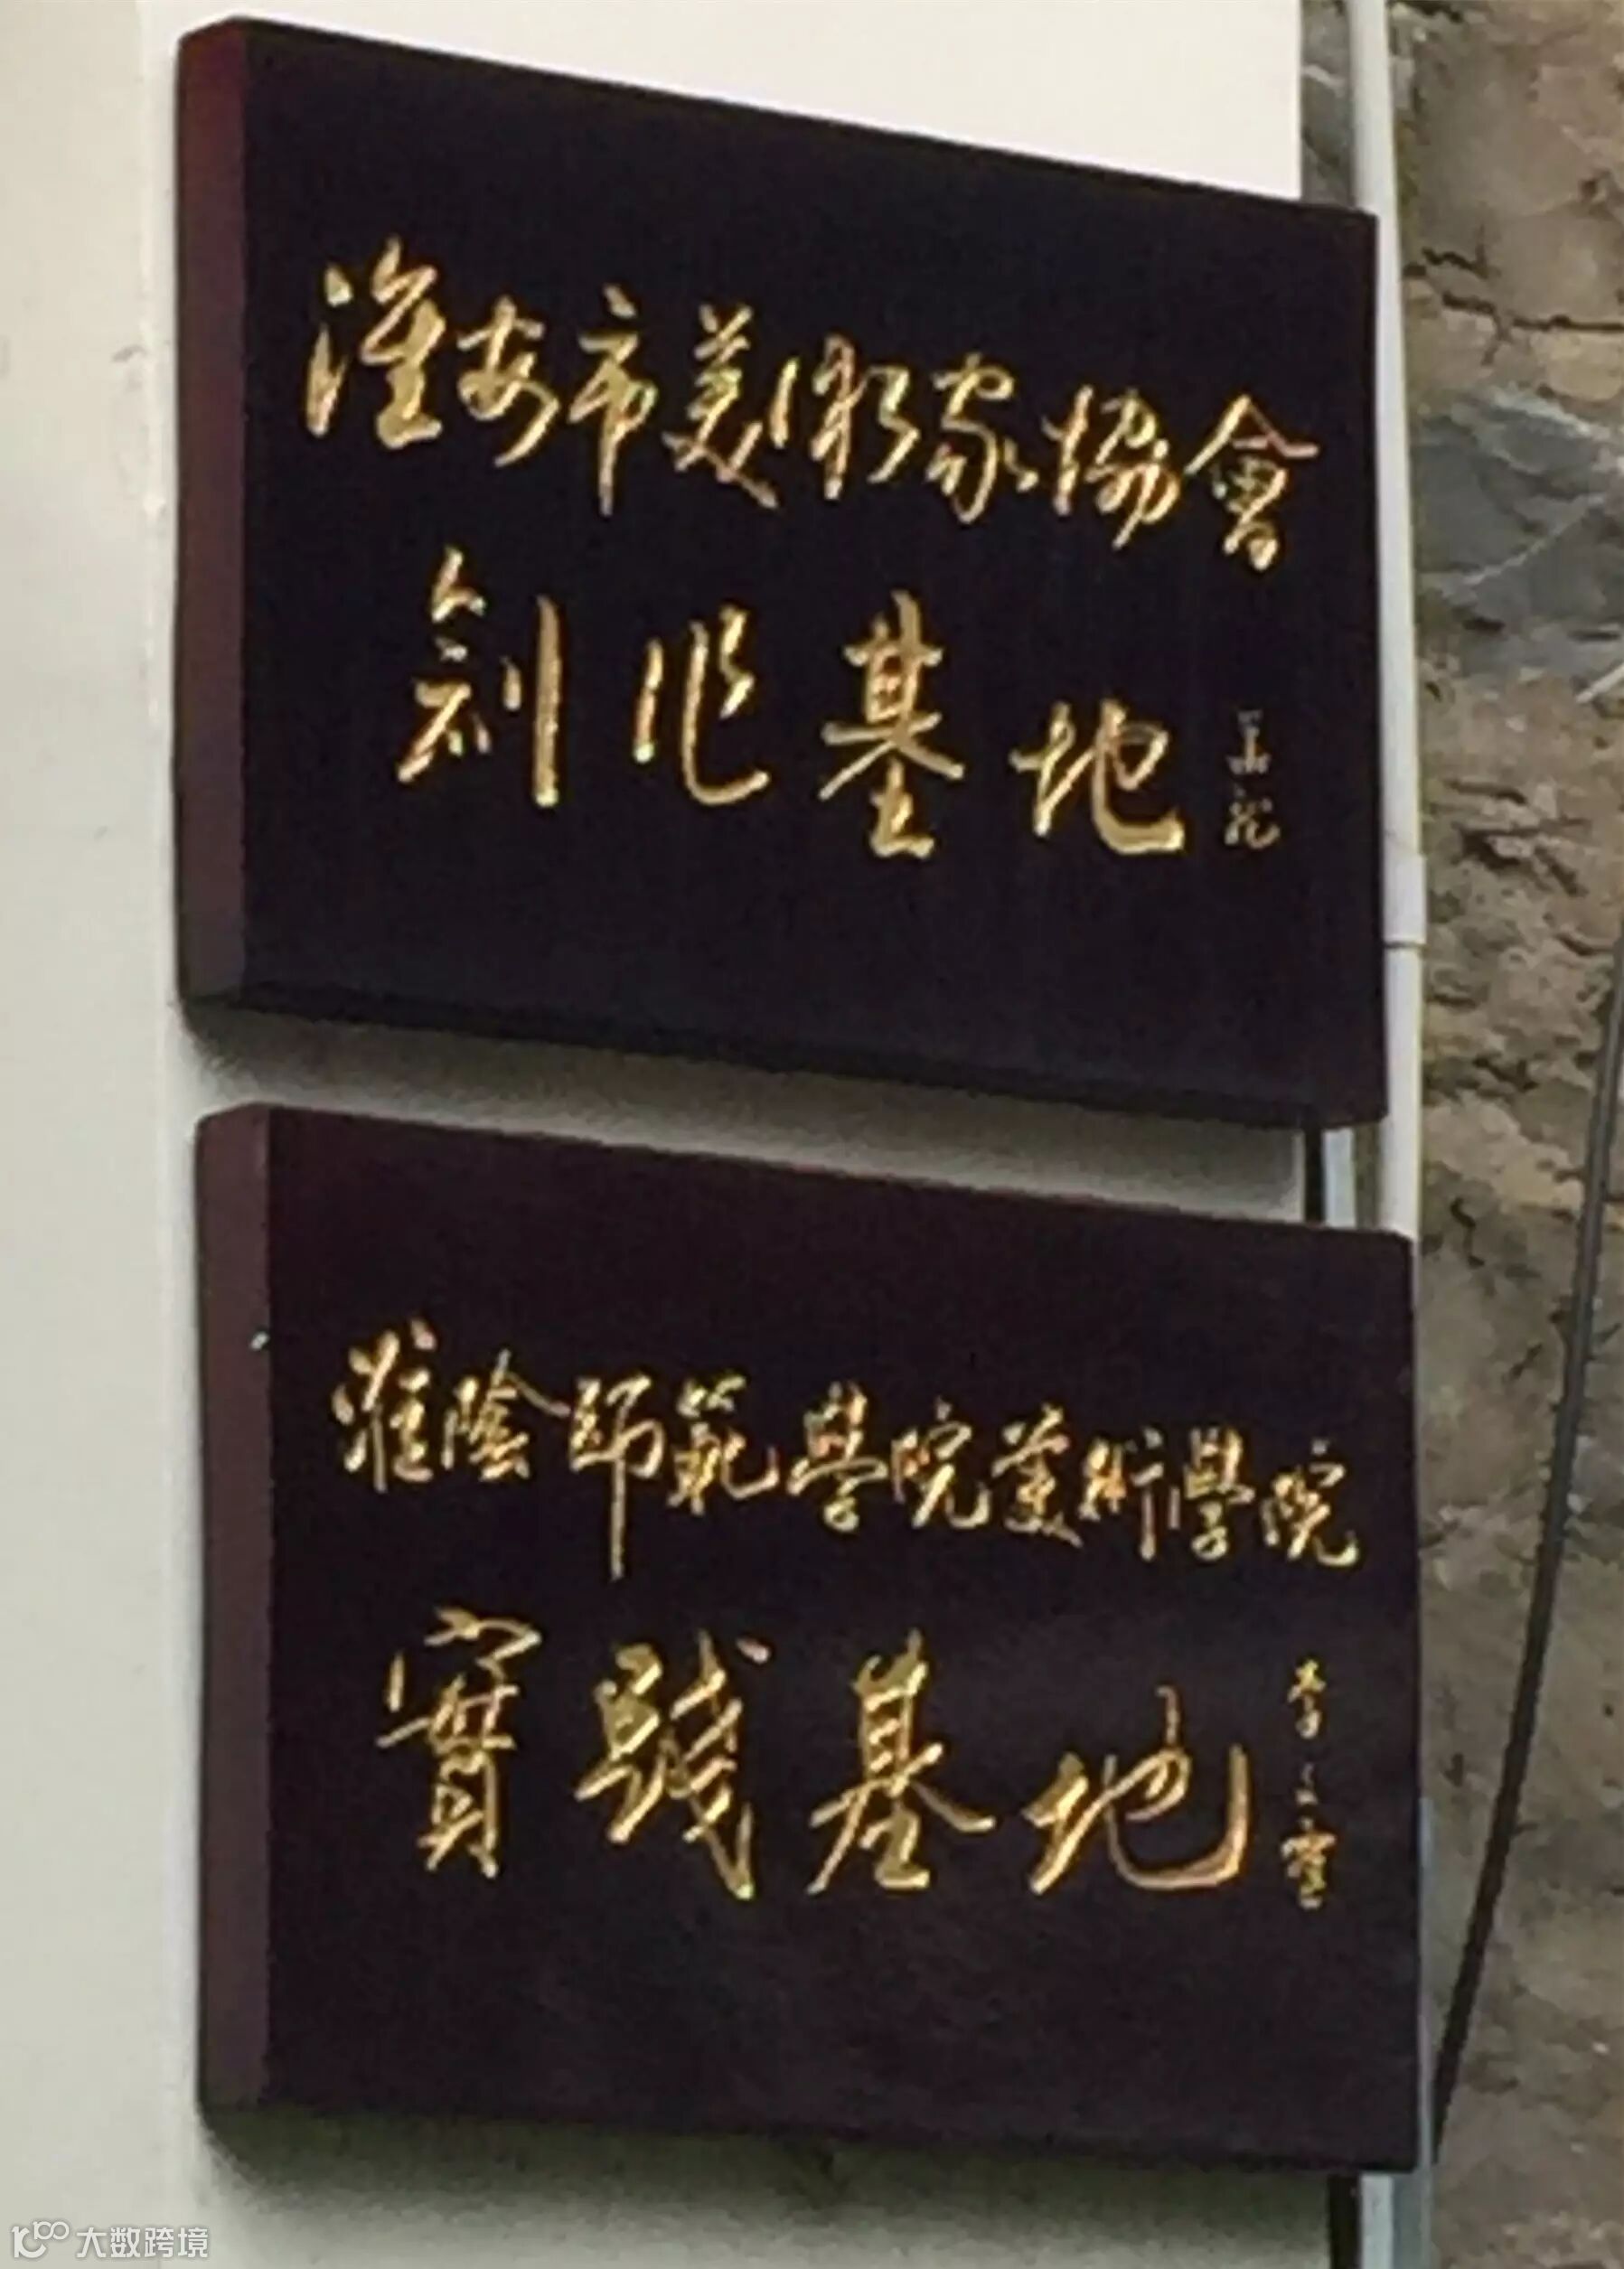 淮安市美術家協會
創作基地
淮陰師範學院美術學院
實踐基地
大数跨境